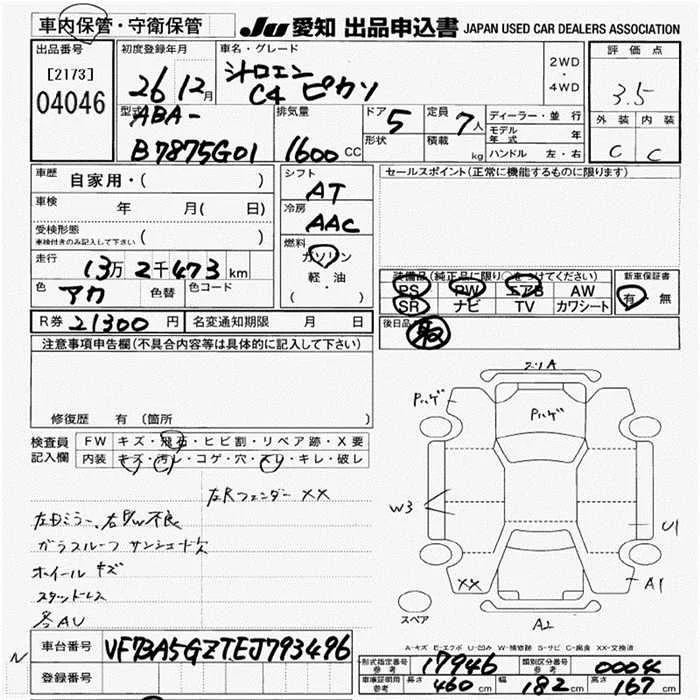 車内保管・守衛保管 JU 愛知 出品申込書 JAPAN USED CAR DEALERS ASSOCIATION
出品番号 初度登録年月 車名・グレード 2WD・4WD 評価点
[2173] 04046 26 12月 シトロエン C4 ピカソ 3.5
型式 ABA-B7875G01 排気量 1600CC ドア 5 形状 定員 7人 積載 kg
ディーラー・並行
モデル年式 年
ハンドル 左・右
外装 内装
C C
車歴 自家用・( ) シフト AT セールスポイント(正常に機能するものに限ります)
車検 年 月( 日) 冷房 AAC
受検形態
車検付きのみ記入して下さい
燃料 ガソリン 軽・油 ( )
走行 13万 2千473km
色 アカ 色替 色コード
装備品(純正品に限り○をつけてください) 新車保証書
PS PW エアB AW 有・無
SR ナビ TV カワシート
R券 21300円 名変通知期限 月 日 後日品 有
注意事項申告欄(不具合内容等は具体的に記入して下さい)
修復歴 有 〔箇所
検査員記入欄 FW キズ・飛石・ヒビ割・リペア跡・X要
内装 キズ・汚レ・コゲ・穴・スレ・キレ・破レ
左Rフェンダー XX
左Dミラー、右P/W不良
ガラスルーフ サンシェード欠
ホイール キズ
スタッドレス
各AU
Pハゲ
Pハゲ
W3
U1
XX
A1
A2
スペア
A-キズ E-エクボ U-凹み W-補修跡 S-サビ C-腐食 XX-交換済
N 車台番号 VF73A5GZTEJ793496
登録番号
形式指定番号 参考 17946 類別区分番号 参考 0004
車庫証明用 参考 長さ 460cm 幅 182cm 高さ 167cm